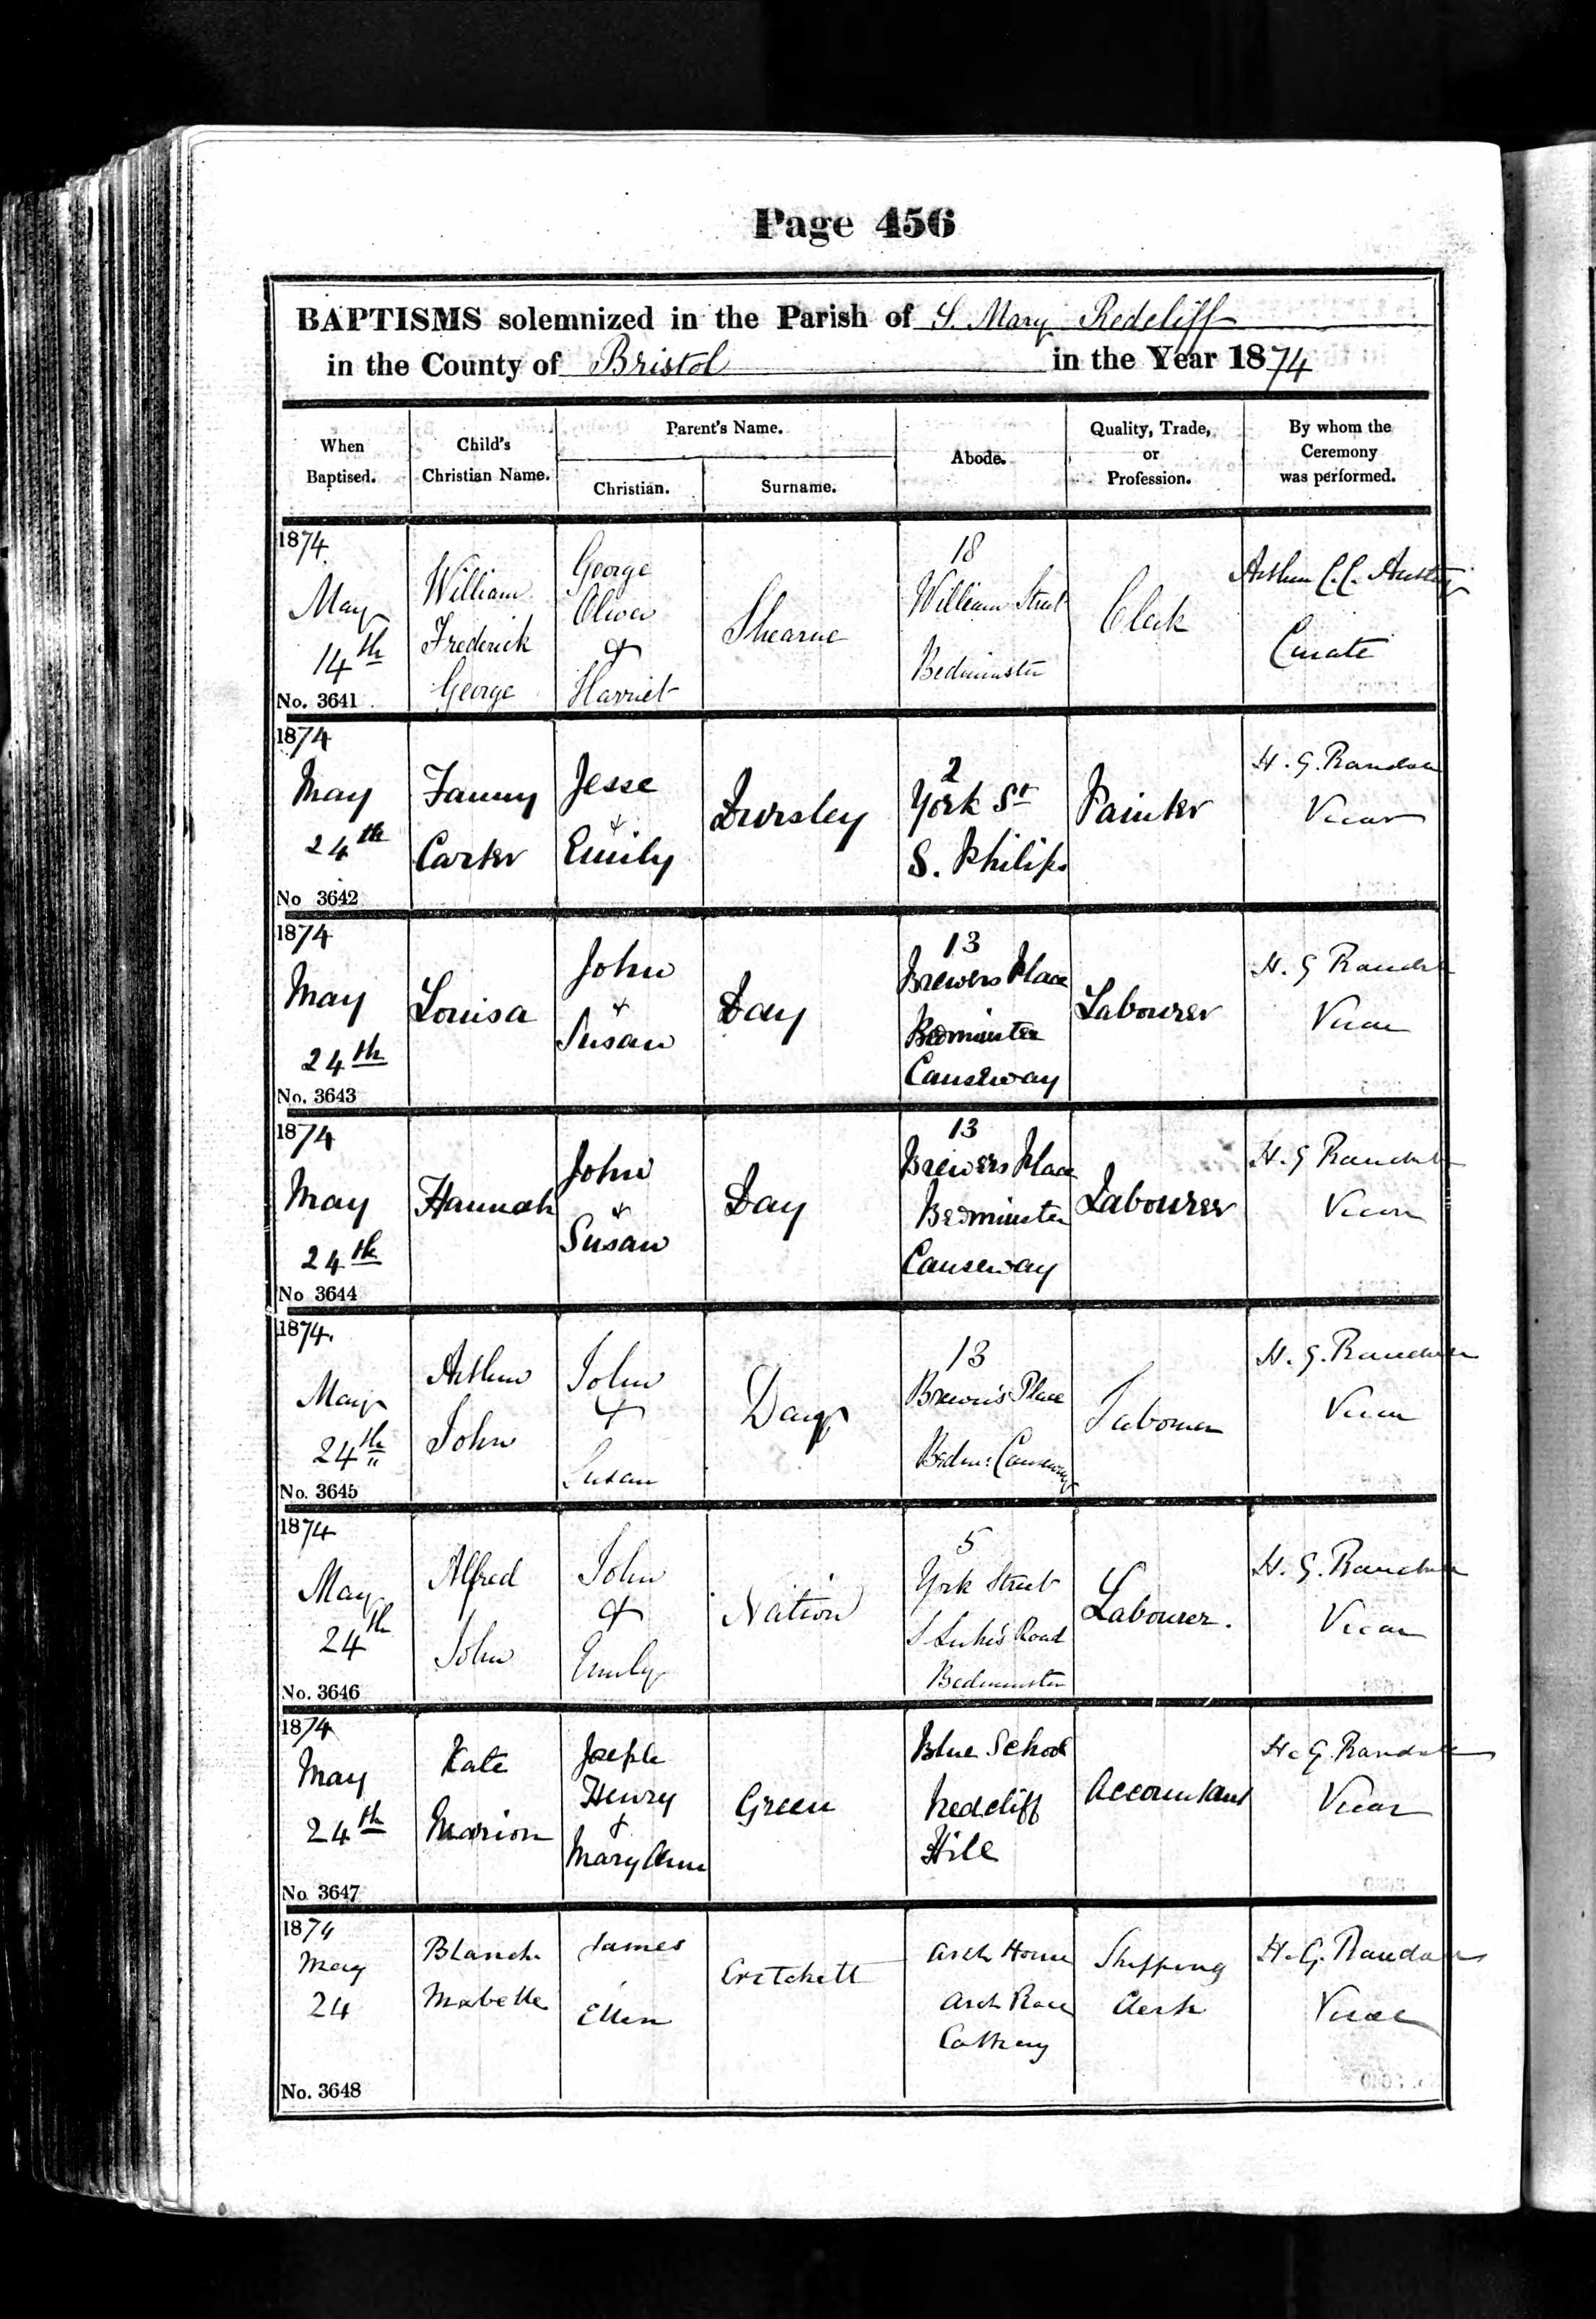 Page 456
BAPTISMS solemnized in the Parish of S. Mary Redcliff
in the County of Bristol in the Year 1874
When Baptised.
Child's Christian Name.
Parent's Name.
Christian.
Surname.
Abode.
Quality, Trade, or Profession.
By whom the Ceremony was performed.
1874
May
14th
No. 3641
William
Frederick
George
George
Oliver
&
Harriet
Shearne
18
William Street
Bedminster
Clerk
Arthur C. C.
Curate
1874
May
24th
No 3642
Fanny
Carter
Jesse
&
Emily
Dursley
2
York St
S. Philips
Painter
H. G. Randall
Vicar
1874
May
24th
No. 3643
Louisa
John
&
Susan
Day
13
Brewers Place
Bedminster
Causeway
Labourer
H. G Randall
Vicar
1874
May
24th
No 3644
Hannah
John
&
Susan
Day
13
Brewers Place
Bedminster
Causeway
Labourer
H. G Randall
Vicar
1874
May
24th
No. 3645
Arthur
John
John
&
Susan
Day
13
Brewer's Place
Bedmr: Causeway
Labourer
H. G. Randall
Vicar
1874
May
24th
No. 3646
Alfred
John
John
&
Emily
Nation
5
York Street
S Luke's Road
Bedminster
Labourer.
H. G. Randall
Vicar
1874
May
24th
No 3647
Kate
Marion
Joseph
Henry
&
Mary Ann
Green
Blue School
Redcliff
Hill
Accountant
H. G. Randall
Vicar
1874
May
24
No. 3648
Blanch
Mabelle
James
Ellen
Cretchett
Arch House
Arch Place
Cathay
Shipping
Clerk
H. G. Randall
Vicar